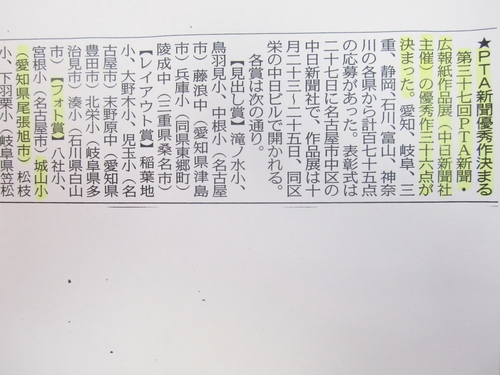 ★PTA新聞優秀作決まる
　第三十七回PTA新聞・
広報紙作品展（中日新聞社
主催）の優秀作三十六点が
決まった。愛知、岐阜、三
重、静岡、石川、富山、神奈
川の各県から計百七十五点
の応募があった。表彰式は
二十七日に名古屋市中区の
中日新聞社で、作品展は十
月二十三～二十五日、同区
栄の中日ビルで開かれる。
各賞は次の通り。
【見出し賞】滝ノ水小、
鳥羽見小、中根小（名古屋
市）藤浪中（愛知県津島
市）兵庫小（同県東郷町）
陵成中（三重県桑名市）
【レイアウト賞】稲葉地
小、大野木小、児玉小（名
古屋市）末野原中（愛知県
豊田市）北栄小（岐阜県多
治見市）湊小（石川県白山
市）【フォト賞】八社小、
宮根小（名古屋市）城山小
（愛知県尾張旭市）松枝
小、下羽栗小（岐阜県笠松